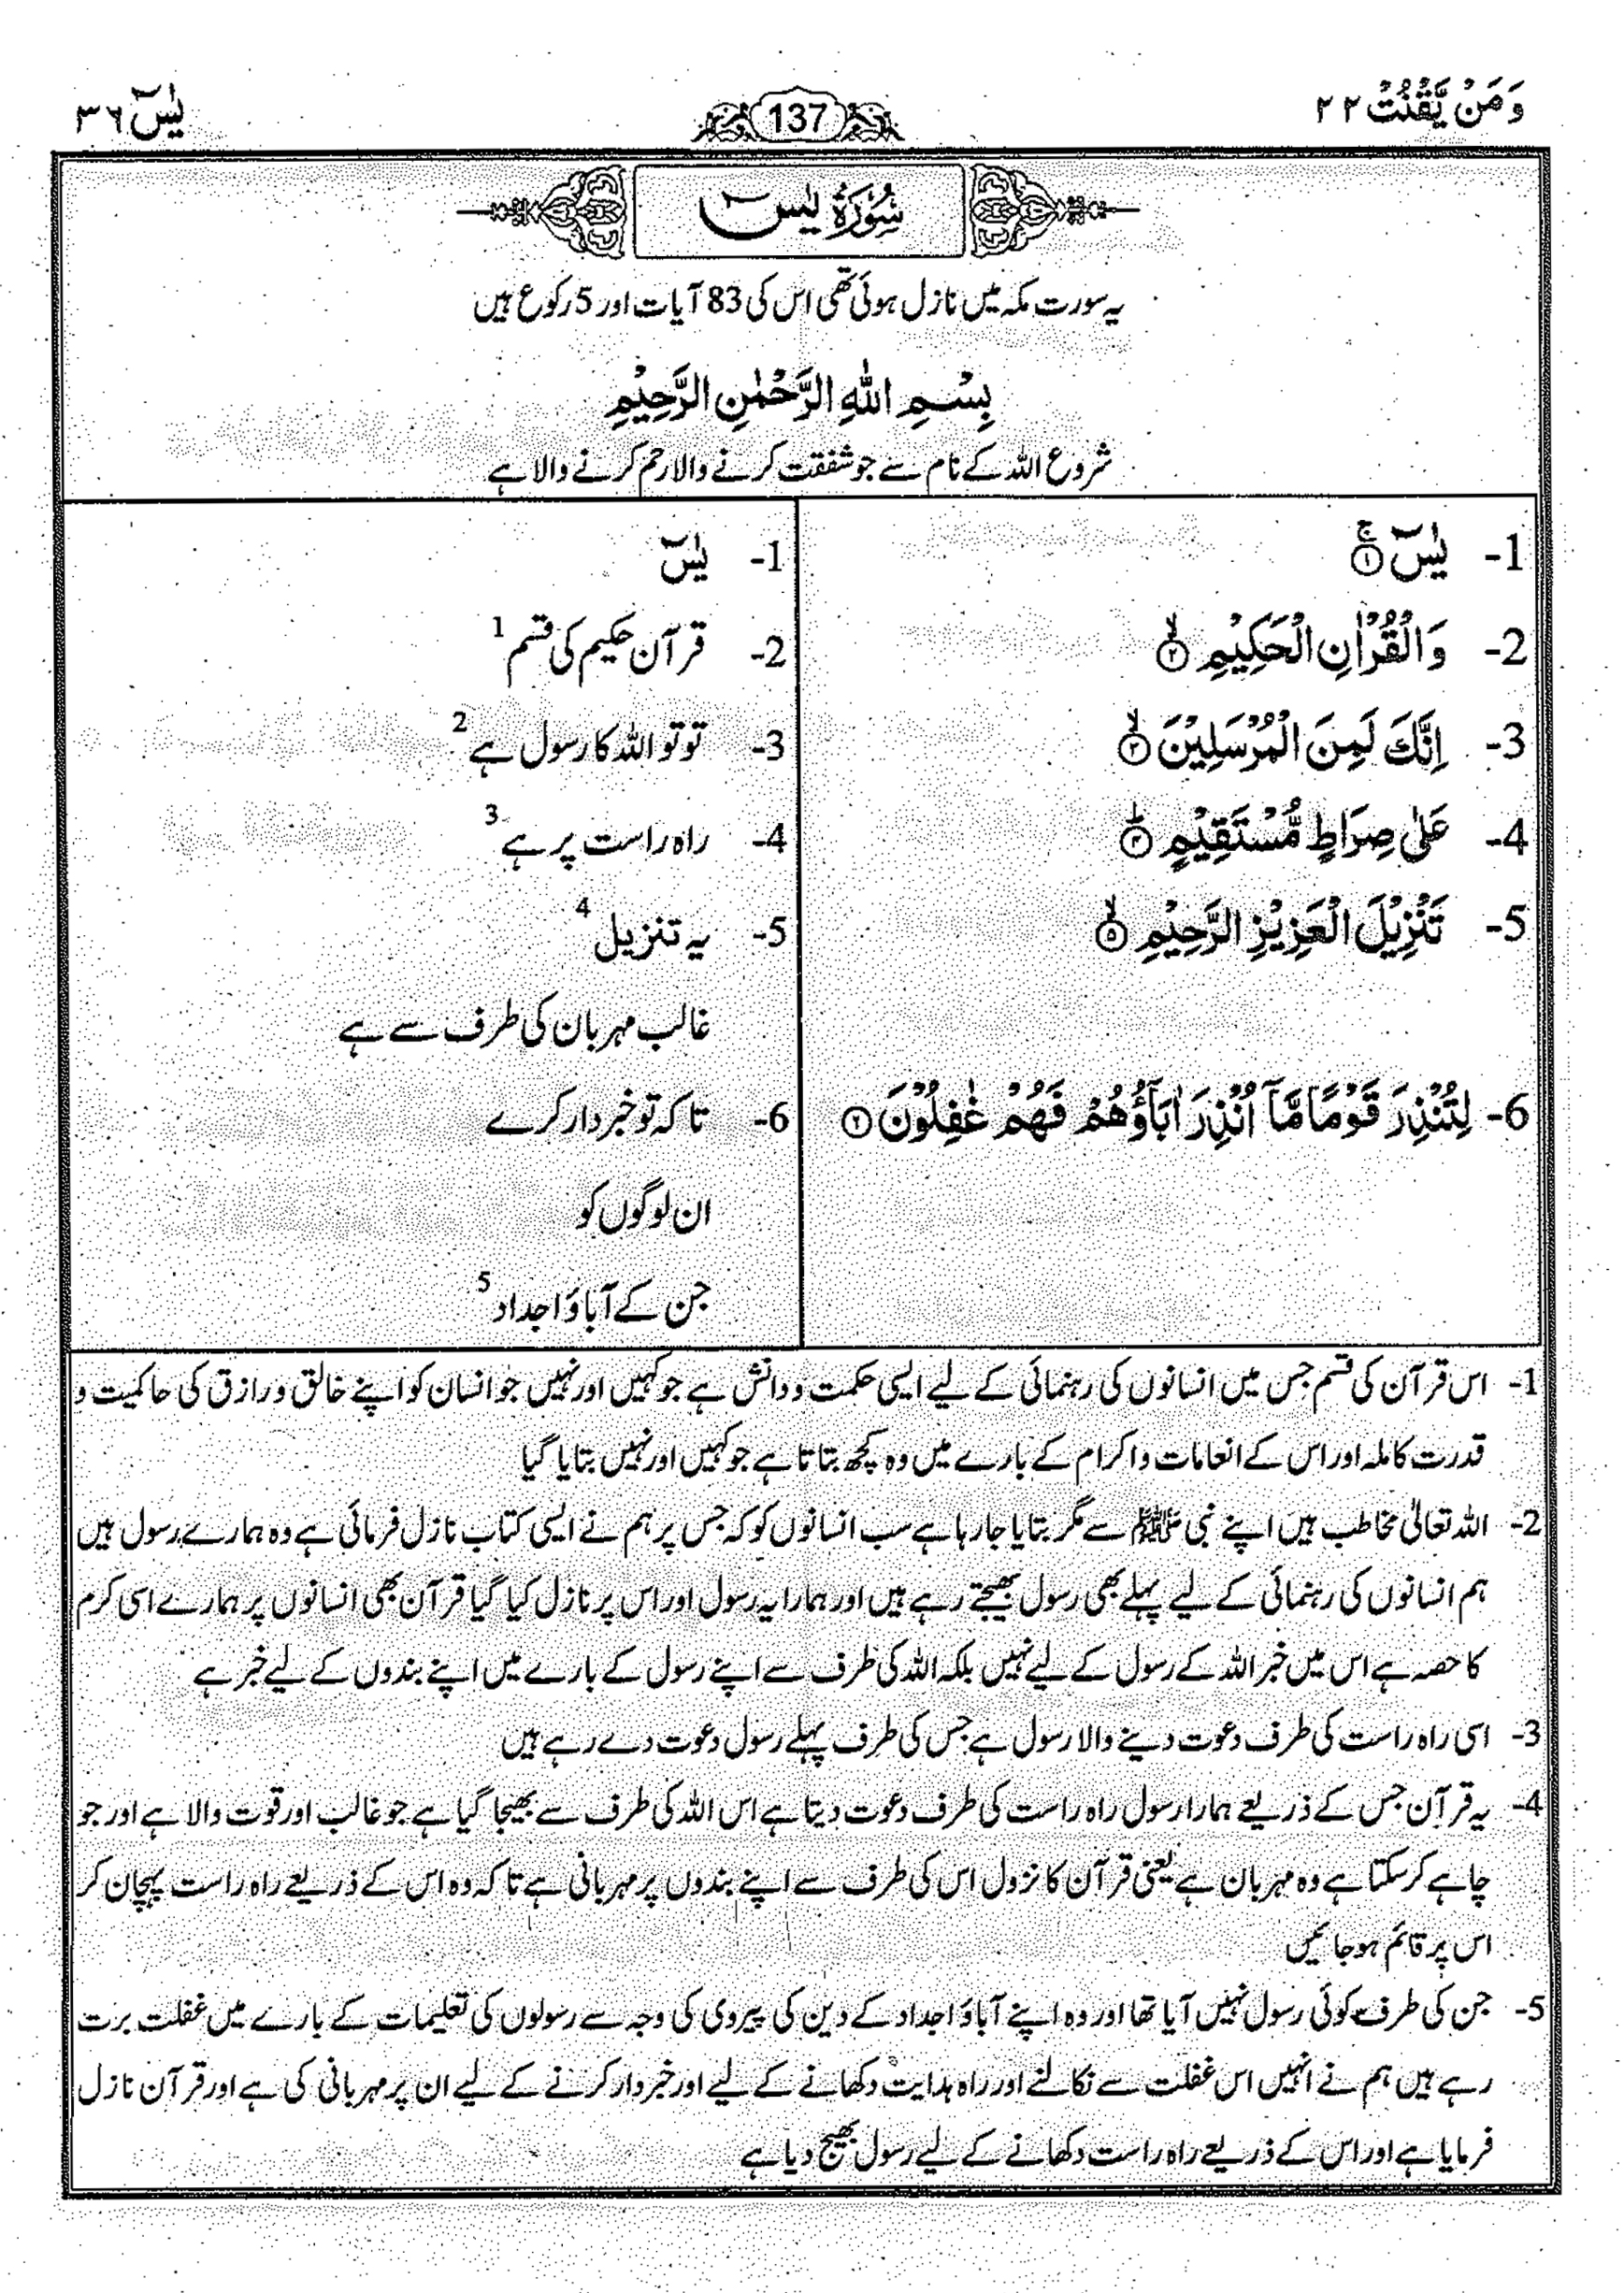 وَمَنْ يَّقْنُتْ ٢٢
137
يٰسٓ ٣٦
سُوْرَةُ يٰسٓ
یہ سورت مکہ میں نازل ہوئی تھی اس کی 83 آیات اور 5 رکوع ہیں
بِسْمِ اللّٰهِ الرَّحْمٰنِ الرَّحِيْمِ
شروع اللہ کے نام سے جو شفقت کرنے والا رحم کرنے والا ہے
1- يٰسٓ ۚ ①
2- وَالْقُرْاٰنِ الْحَكِيْمِ ۙ ②
3- اِنَّكَ لَمِنَ الْمُرْسَلِيْنَ ۙ ③
4- عَلٰى صِرَاطٍ مُّسْتَقِيْمٍ ؕ ④
5- تَنْزِيْلَ الْعَزِيْزِ الرَّحِيْمِ ۙ ⑤
6- لِتُنْذِرَ قَوْمًا مَّاۤ اُنْذِرَ اٰبَآؤُهُمْ فَهُمْ غٰفِلُوْنَ ⑥
1- يٰسٓ
2- قرآن حکیم کی قسم 1
3- تو تو اللہ کا رسول ہے 2
4- راہ راست پر ہے 3
5- یہ تنزیل 4
غالب مہربان کی طرف سے ہے
6- تاکہ تو خبردار کرے
ان لوگوں کو
جن کے آباؤ اجداد 5
1- اس قرآن کی قسم جس میں انسانوں کی رہنمائی کے لیے ایسی حکمت و دانش ہے جو کہیں اور نہیں جو انسان کو اپنے خالق و رازق کی حاکمیت و
قدرت کاملہ اور اس کے انعامات و اکرام کے بارے میں وہ کچھ بتاتا ہے جو کہیں اور نہیں بتایا گیا
2- اللہ تعالیٰ مخاطب ہیں اپنے نبی ﷺ سے مگر بتایا جا رہا ہے سب انسانوں کو کہ جس پر ہم نے ایسی کتاب نازل فرمائی ہے وہ ہمارے رسول ہیں
ہم انسانوں کی رہنمائی کے لیے پہلے بھی رسول بھیجتے رہے ہیں اور ہمارا یہ رسول اور اس پر نازل کیا گیا قرآن بھی انسانوں پر ہمارے اسی کرم
کا حصہ ہے اس میں خبر اللہ کے رسول کے لیے نہیں بلکہ اللہ کی طرف سے اپنے رسول کے بارے میں اپنے بندوں کے لیے خبر ہے
3- اسی راہ راست کی طرف دعوت دینے والا رسول ہے جس کی طرف پہلے رسول دعوت دے رہے ہیں
4- یہ قرآن جس کے ذریعے ہمارا رسول راہ راست کی طرف دعوت دیتا ہے اس اللہ کی طرف سے بھیجا گیا ہے جو غالب اور قوت والا ہے اور جو
چاہے کر سکتا ہے وہ مہربان ہے یعنی قرآن کا نزول اس کی طرف سے اپنے بندوں پر مہربانی ہے تاکہ وہ اس کے ذریعے راہ راست پہچان کر
اس پر قائم ہو جائیں
5- جن کی طرف کوئی رسول نہیں آیا تھا اور وہ اپنے آباؤ اجداد کے دین کی پیروی کی وجہ سے رسولوں کی تعلیمات کے بارے میں غفلت برت
رہے ہیں ہم نے انہیں اس غفلت سے نکالنے اور راہ ہدایت دکھانے کے لیے اور خبردار کرنے کے لیے ان پر مہربانی کی ہے اور قرآن نازل
فرمایا ہے اور اس کے ذریعے راہ راست دکھانے کے لیے رسول بھیج دیا ہے